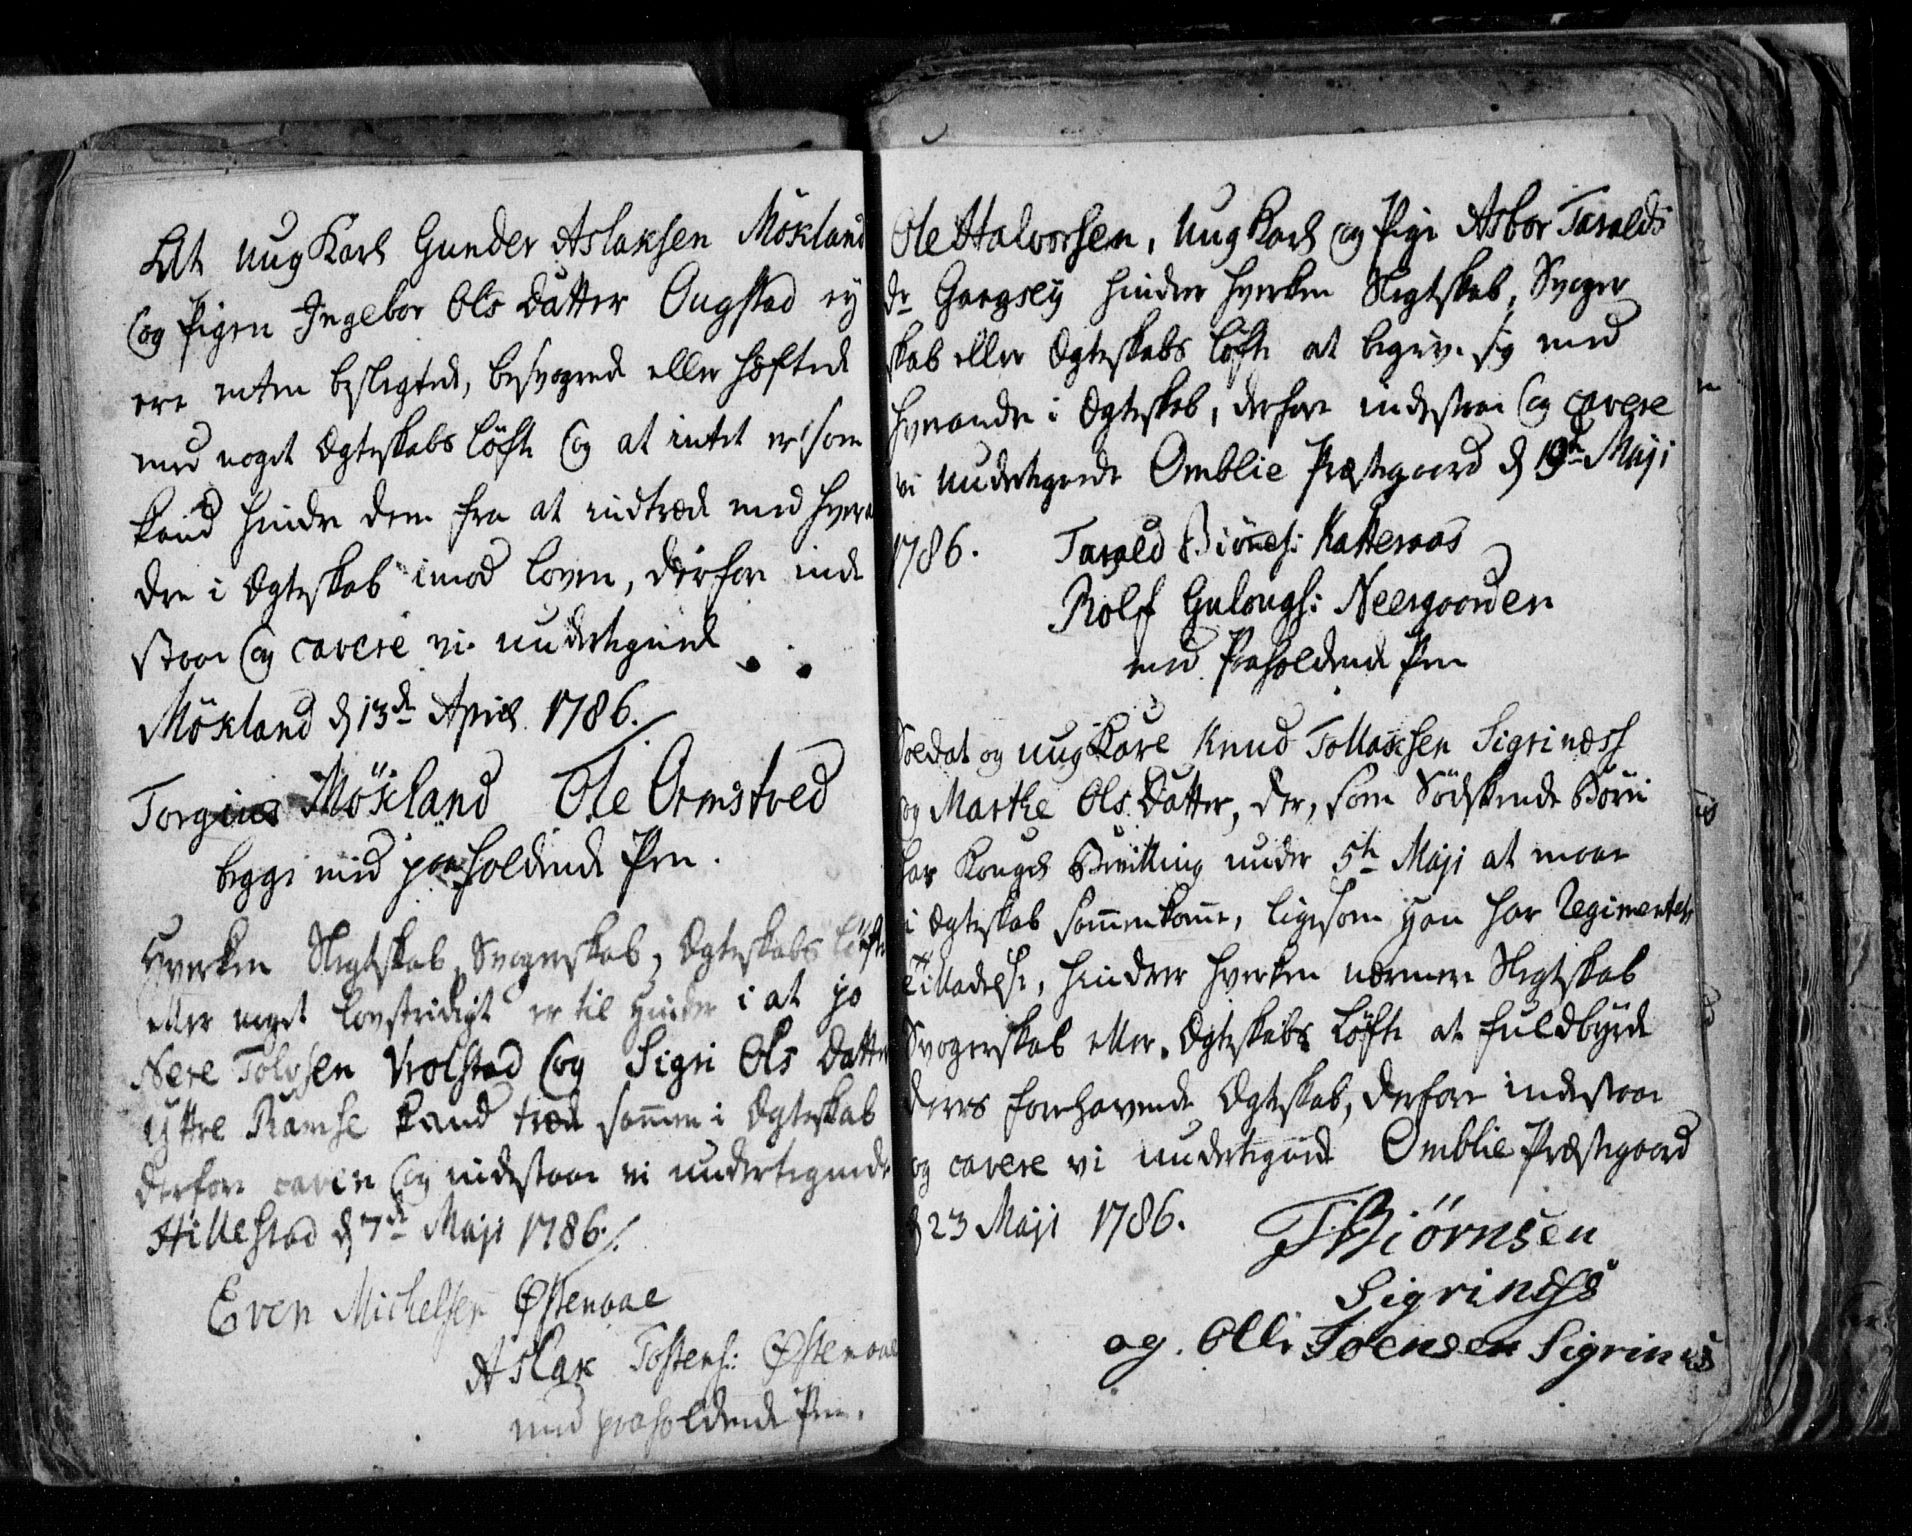 At ung Karl Gunder Aslaksen Mökland
og Pigen Ingebor Ols Datter Ougstad ey
ere enten beslegtede, besvogrede eller hæftede
med noget Ægteskabs Löfte og at intet er som
kand hindre dem fra at indtræde med hveran
dre i Ægteskab imod Loven, derfore inde
staar og cavere vi undertegnede
Mökland d 13de April 1786.
Torgius Mökland Ole Ormstved
begge med paaholdende Pen.
Hverken Slegtskab, Svogerskab, Ægteskabs Löfte
eller noget lovstridigt er til Hinder i at
Nere Tolvsen Vrolstad og Sigri Ols Datter
Yttre Ramse kand træde sammen i Ægteskab
derfore cavere og indestaar vi undertegnede
Hillestad d 7de Maji 1786.
Even Michelsen Østenaae
Aslak Tostens: Østenaae
med paaholdende Pen.
Ole Halvorsen, Ung Karl og Pige Asbor Taralds
dr Gaagsey hindrer hverken Slegtskab, Svoger
skab eller Ægteskabs Löfte at begive sig med
hverandre i Ægteskab, derfore indestaar og cavere
vi undertegnede Omblie Præstegaard d 19de Maji
1786. Tarald Biörnes: Katteraas
Rolf Gulougs: Neergaarden
med Paaholdende Pen
Soldat og ung Karl Knud Tollaksen Sigrinæss
og Marthe Ols Datter, der, som Södskende Börn
har Konge Bevilling under 5te Maji at maae
i Ægteskab sammenkomme, ligesom Han har Regimentets
Tilladelse, hindrer hverken nærmere Slegtskab
Svogerskab eller Ægteskabs Löfte at fuldbyrde
deres forehavende Ægteskab, derfore indestaar
og cavere vi undertegnede Omblie Præstegaard
d 23 Maji 1786. TBiörnsen
Sigrinæss
og Olle Joensen Sigrinæs